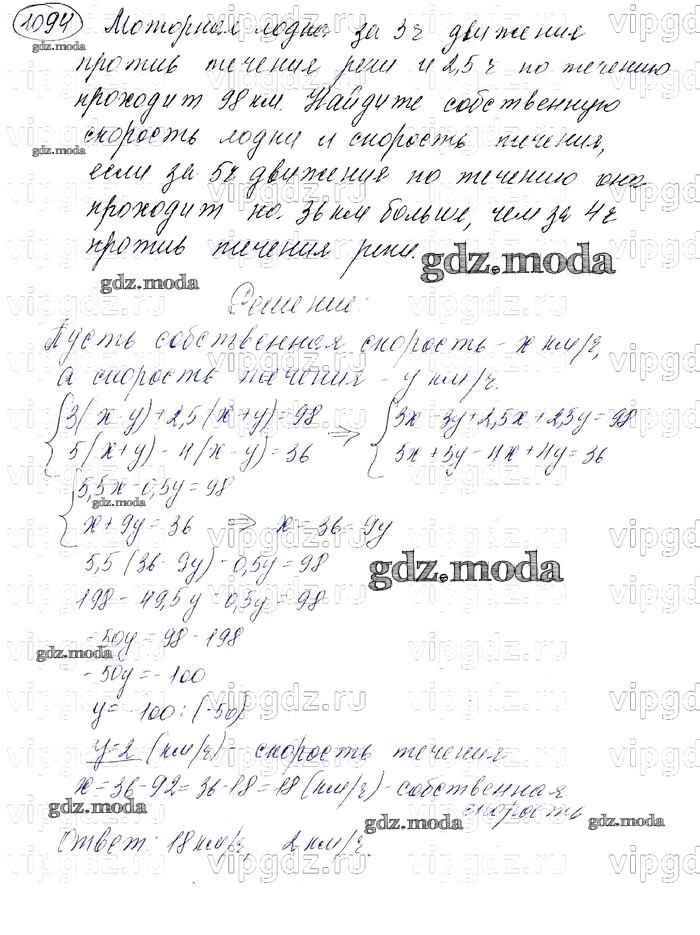 1094 Моторная лодка за 3ч движения
против течения реки и 2,5ч по течению
проходит 98 км. Найдите собственную
скорость лодки и скорость течения,
если за 5ч движения по течению она
проходит на 36 км больше, чем за 4ч
против течения реки.
gdz.moda
Решение:
Пусть собственная скорость - x км/ч,
а скорость течения - y км/ч.
{3(x-y)+2,5(x+y)=98
5(x+y)-4(x-y)=36
=> {3x-3y+2,5x+2,5y=98
5x+5y-4x+4y=36
{5,5x-0,5y=98
x+9y=36 => x=36-9y
5,5(36-9y)-0,5y=98
198-49,5y-0,5y=98
-50y=98-198
-50y=-100
y=-100:(-50)
y=2 (км/ч) - скорость течения
x=36-9·2=36-18=18 (км/ч) - собственная
скорость
Ответ: 18 км/ч, 2 км/ч.
gdz.moda
vipgdz.ru